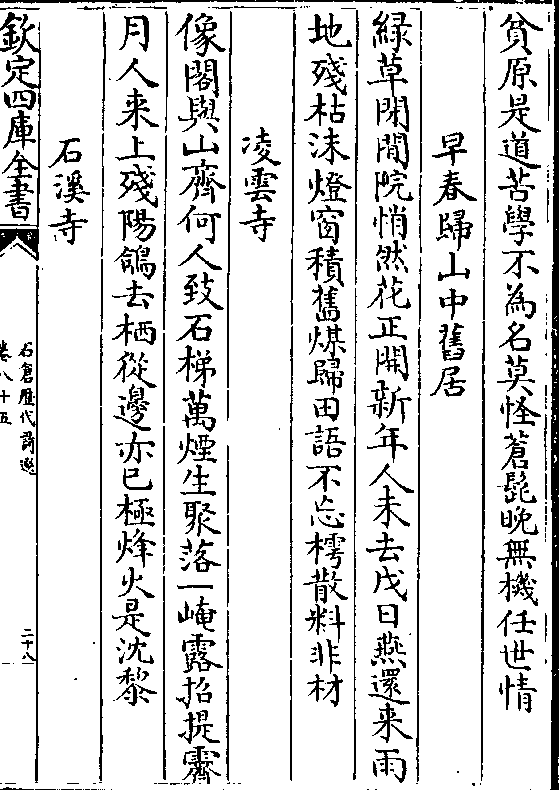 貧原是道苦學不為名莫怪蒼髭晚無機任世情
早春歸山中舊居
緑草閉閒院悄然花正開新年人未去戊日燕還来雨
地殘枯沫燈窗積舊煤歸田語不忘樗散料非材
凌雲寺
像閣與山齊何人致石梯萬煙生聚落一崦露招提霽
月人来上殘陽鴿去栖從邊亦已極烽火是沈黎
石溪寺
欽定四庫全書
石倉歷代詩選
卷八十五
二十八